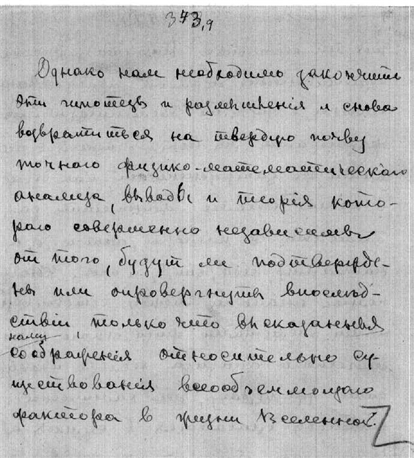 373,9
Однако нам необходимо закончить
эти гипотезы и размышленія и снова
возвратиться на твердую почву
точнаго физико-математическаго
анализа, выводы и теорія кото-
раго совершенно независимы
от того, будут ли подтвержде-
ны или опровергнуты впослѣд-
ствіи, только что высказанныя
нами
соображенія относительно су-
ществованія всеобъемлющаго
фактора в жизни Вселенной.